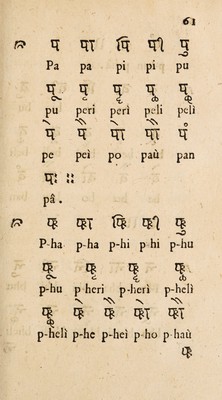 61
प पा पि पी पु
Pa pa pi pi pu
पू पृ पॄ पॢ पॣ
pu peri perì peli pelì
पे पै पो पौ पं
pe peì po paù pan
पः ፡፡
pâ .
फ फा फि फी फु
P-ha p-ha p-hi p-hi p-hu
फू फृ फॄ फॢ
p-hu p-heri p-herì p-helì
फॣ फे फै फो फौ
p-helì p-he p-heì p-ho p-haù
फं